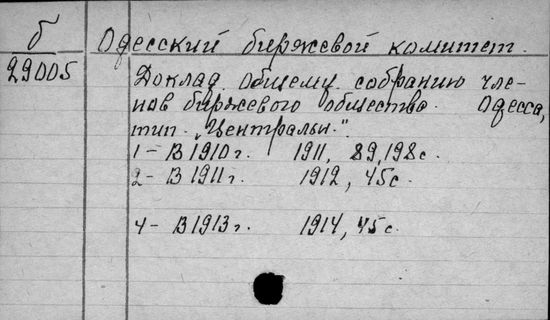 б
29005
Одесский биржевой комитет.
Доклад общему собранию чле-
нов биржевого общества. Одесса,
тип. "Центральн."
1 - В 1910 г. 1911, 89, 198 с.
2 - В 1911 г. 1912, 45 с.
4 - В 1913 г. 1914, 45 с.